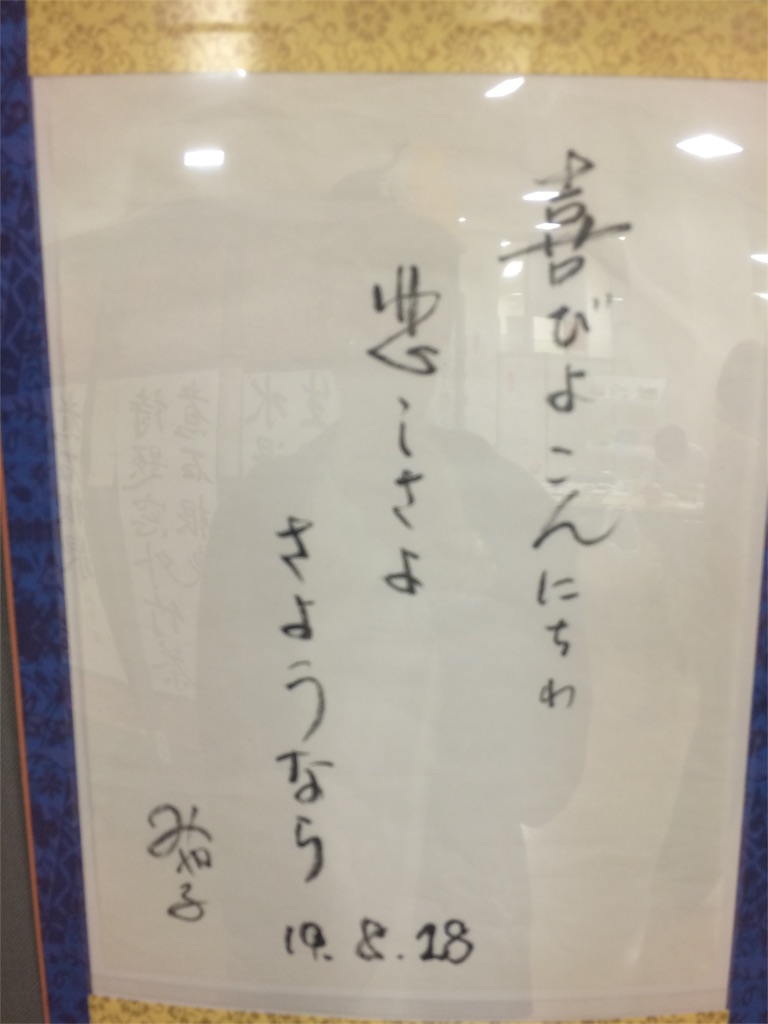 喜びよこんにちわ
悲しさよ
さようなら
19.8.18